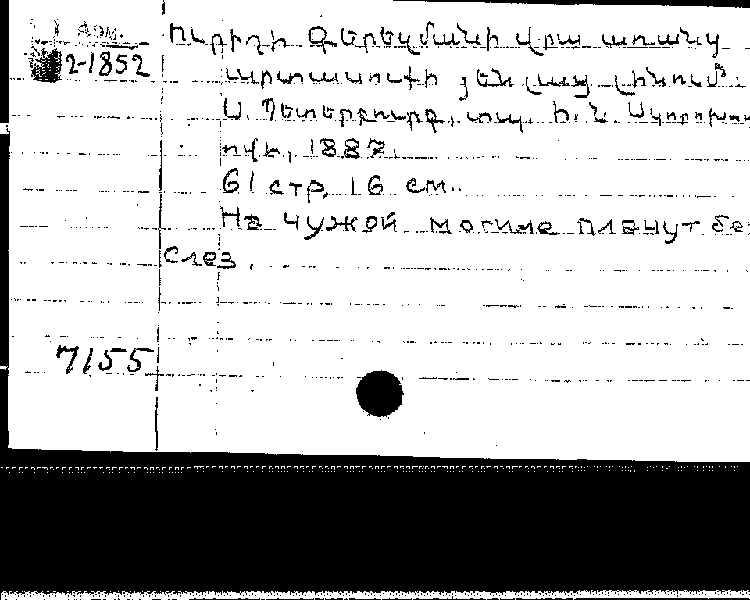 Арм.
2-1852
Ուրիշի գերեզմանի վրա առանց
արտասուքի յեն լաց լինում.
Ս. Պետերբուրգ, տպ. Ի. Ն. Սկորոխո
ովի, 1887.
61 стр. 16 см.
На чужой могиле плачут без
слез.
7155